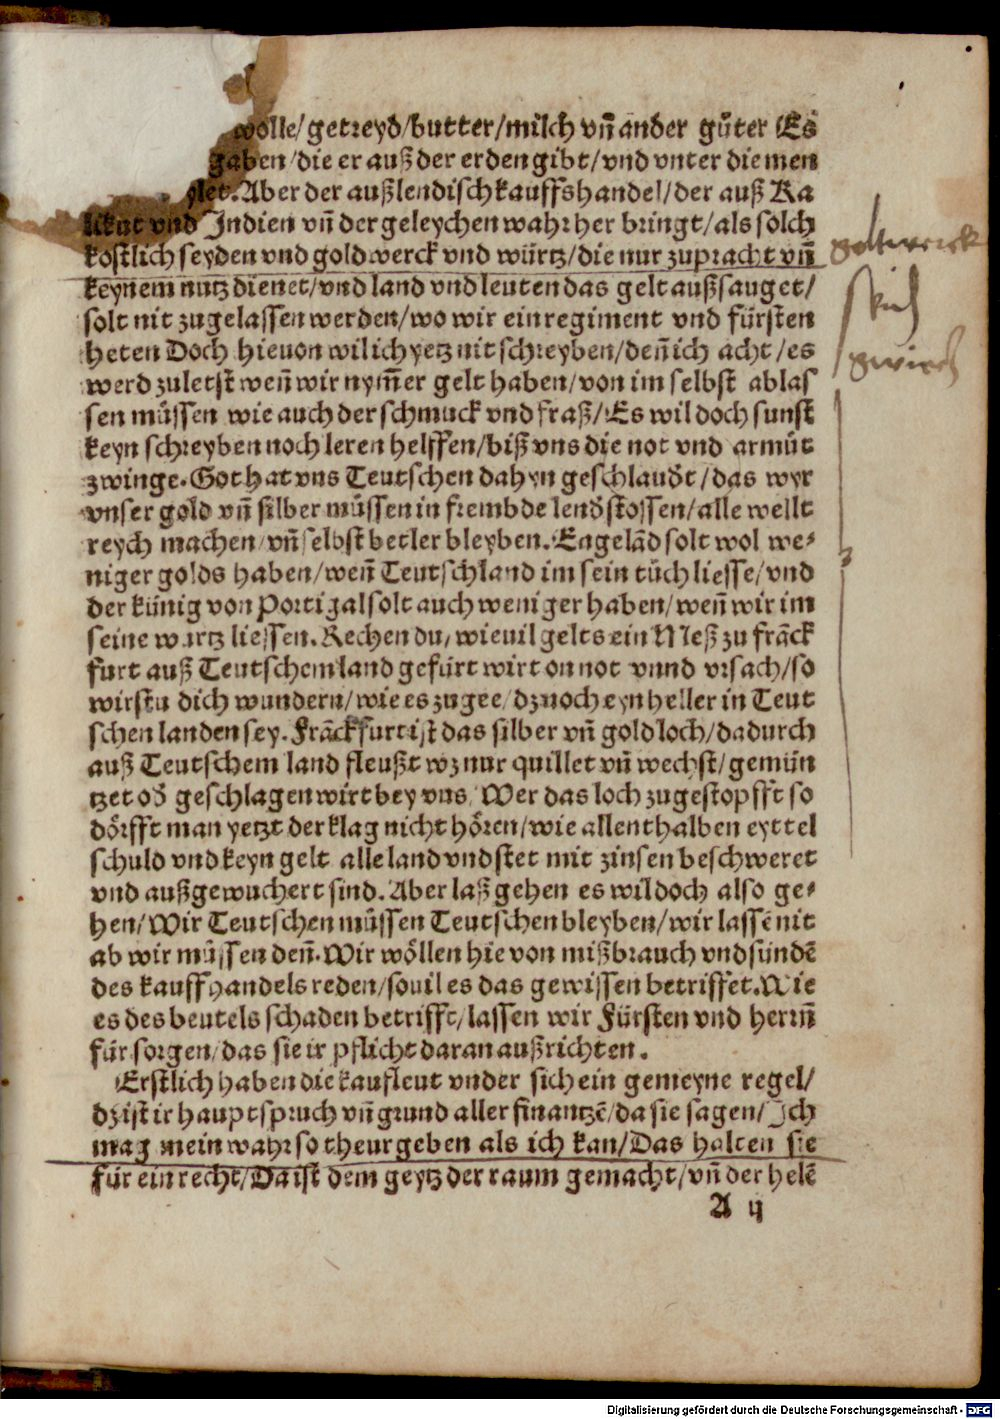 wolle/getreyd/butter/milch vñ ander guͤter Es
gaben/die er auß der erden gibt/vnd vnter die men
ylet. Aber der außlendisch kauffshandel/der auß Ka
likut vnd Indien vñ der geleychen wahr her bringt/als solch
kostlich seyden vnd gold werck vnd wuͤrtz/die nur zu pracht vñ
keynem nutz dienet/vnd land vnd leuten das gelt außsauget/
solt nit zugelassen werden/wo wir ein regiment vnd fuͤrsten
heten Doch hieuon wil ich yetz nit schreyben/deñ ich acht/es
werd zuletst weñ wir nym̃er gelt haben/von im selbst ablas
sen muͤssen wie auch der schmuck vnd fraß/Es wil doch sunst
keyn schreyben noch leren helffen/biß vns die not vnd armuͤt
zwinge. Got hat vns Teutschen dahyn geschlaudt/das wyr
vnser gold vñ silber muͤssen in frembde lend stossen/alle wellt
reych machen/vñ selbst betler bleyben. Engelãd solt wol we-
niger golds haben/weñ Teutschland im sein tuͤch liesse/vnd
der kuͤnig von Portigal solt auch weniger haben/weñ wir im
seine wurtz liessen. Rechen du/wieuil gelts ein Meß zu frãck
furt auß Teutschem land gefuͤrt wirt on not vnnd vrsach/so
wirstu dich wundern/wie es zugee/dz noch eyn heller in Teut
schen landen sey. Frãckfurt ist das silber vñ gold loch/dadurch
auß Teutschem land fleußt wz nur quillet vñ wechst/gemuͤn
tzet od geschlagen wirt bey vns/Wer das loch zugestopfft so
doͤrfft man yetzt der klag nicht hoͤren/wie allenthalben eyttel
schuld vnd keyn gelt alle land vnd stet mit zinsen beschweret
vnd außgewuchert sind. Aber laß gehen es wil doch also ge-
hen/Wir Teutschen muͤssen Teutschen bleyben/wir lassẽ nit
ab wir muͤssen deñ. Wir woͤllen hie von mißbrauch vnd suͤndẽ
des kauffhandels reden/souil es das gewissen betriffet. Wie
es des beutels schaden betrifft/lassen wir Fuͤrsten vnd herrñ
fuͤr sorgen/das sie ir pflicht daran außrichten.
Erstlich haben die kaufleut vnder sich ein gemeyne regel/
dz ist ir hauptspruch vñ grund aller finantzẽ/da sie sagen/Ich
mag mein wahr so theur geben als ich kan/Das halten sie
fuͤr ein recht/Da ist dem geytz der raum gemacht/vñ der helẽ
A ij
goltwerck
Digitalisierung gefördert durch die Deutsche Forschungsgemeinschaft - DFG